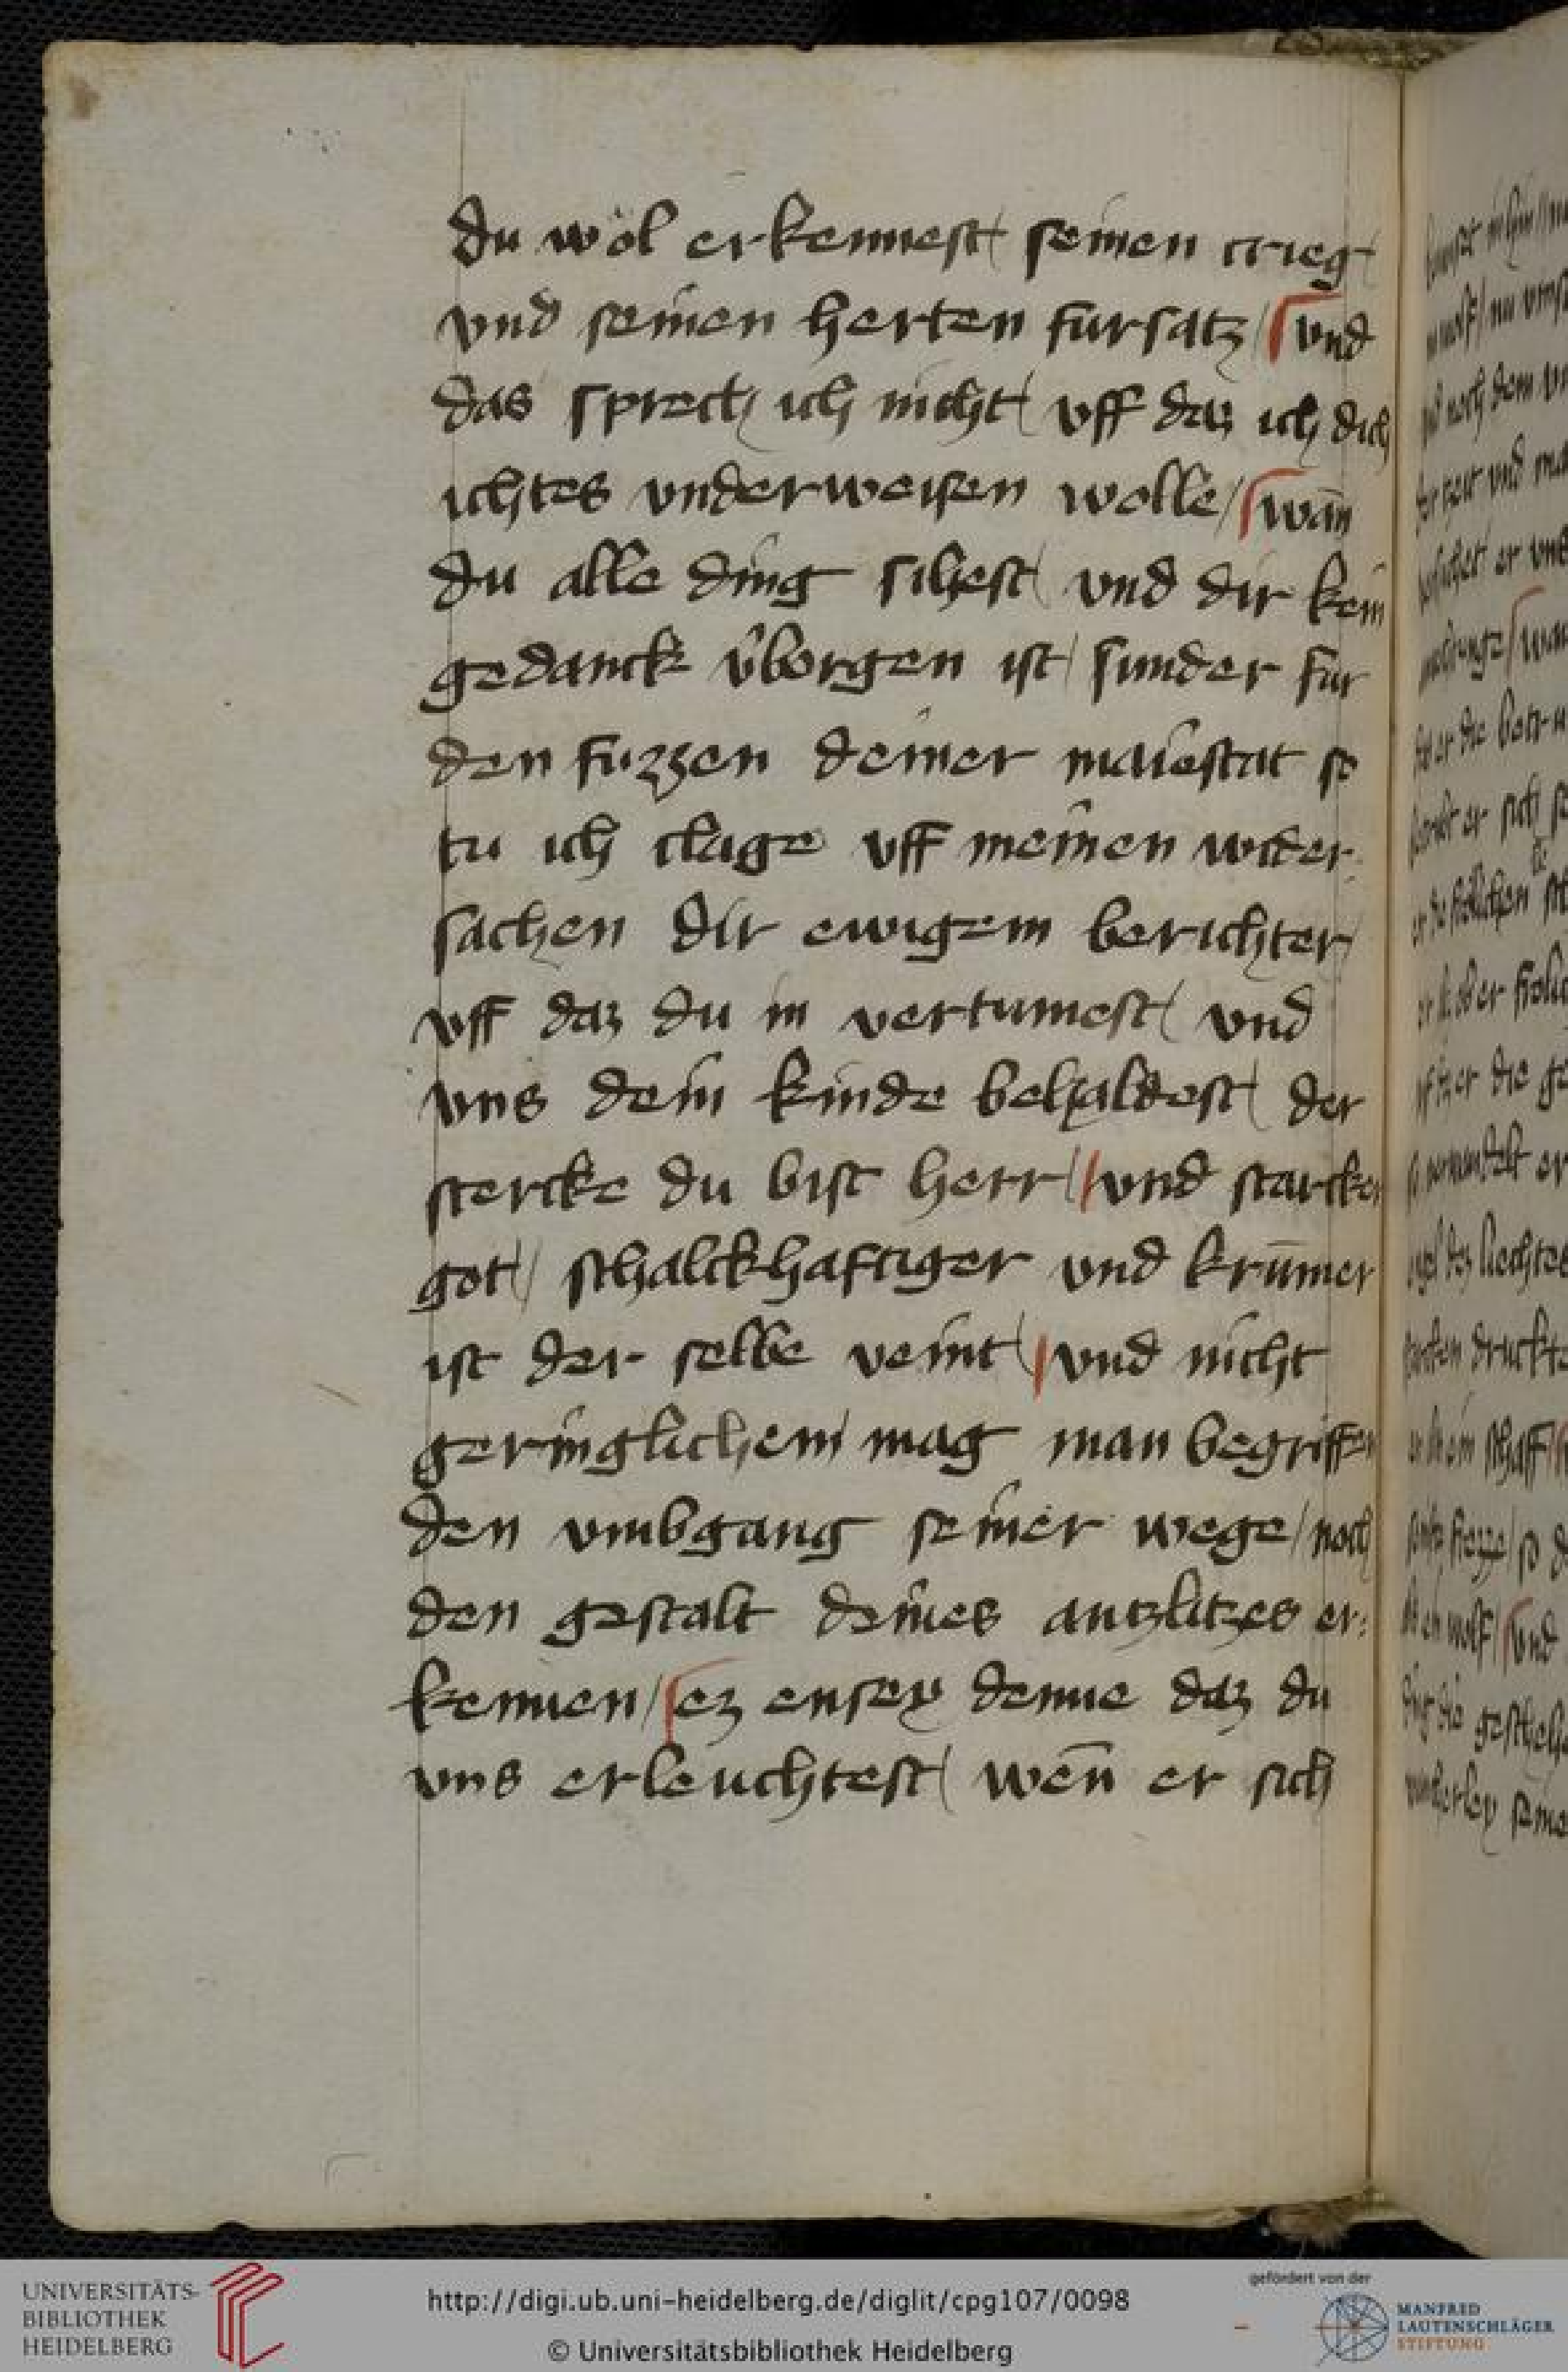 du wöl erkennest / seinen crieg /
vnd seinen herten fursatz / vnd
das sprech ich nicht / vff daz ich dich
ichtes vnderweisen wolle / wān
du alle ding sihest / vnd dir kein
gedanck v̂borgen ist / sunder fur
den fuzzen deiner maiestat so
tu ich clage vff meinen wider
sachen dir ewigem berichter /
vff daz du in vertumest / vnd
vns dein kinde behaldest / der
stercke du bist herr / vnd starcker
got // schalckhaftiger vnd krūmer
ist der selbe veint / vnd nicht
geringlichem mag man begriffen
den vmbgang seiner wege / noch
den gestalt deines antzlitzes er=
kennen / ez ensey denne daz du
vns erleuchtest / wēn er sich
UNIVERSITÄTS-
BIBLIOTHEK
HEIDELBERG
http://digi.ub.uni-heidelberg.de/diglit/cpg107/0098
© Universitätsbibliothek Heidelberg
gefördert von der
MANFRED
LAUTENSCHLÄGER
STIFTUNG